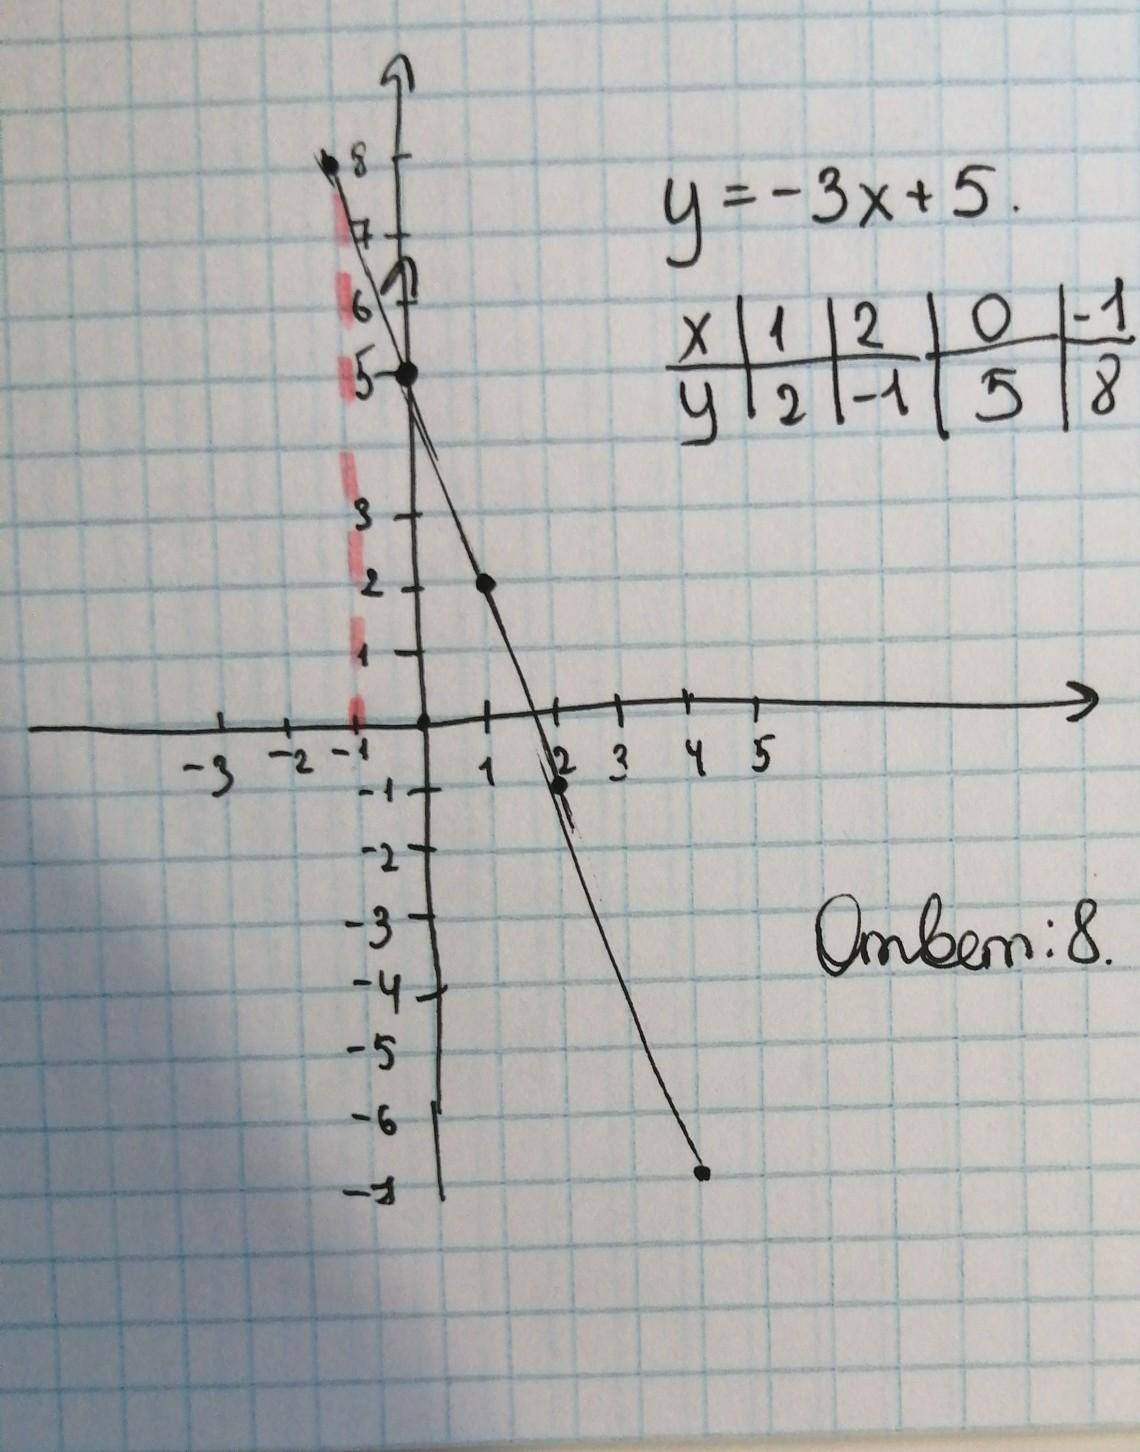 8
7
6
5
3
2
1
-3 -2 -1 1 2 3 4 5
-1
-2
-3
-4
-5
-6
y = -3x + 5.
x | 1 | 2 | 0 | -1
y | 2 | -1 | 5 | 8
Ответ: 8.